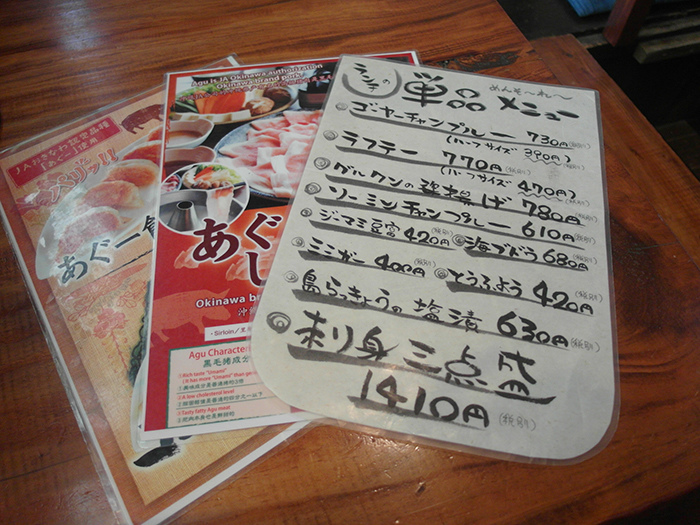 ランチの
単品メニュー
めんそ〜れ〜
ゴーヤーチャンプルー 730円(税別)
(ハーフサイズ 390円)(税別)
ラフテー 770円(税別)
(ハーフサイズ 470円)(税別)
グルクンの唐揚げ 780円(税別)
ソーミンチャンプルー 610円(税別)
ジーマミ豆富 420円(税別)
海ブドウ 680円(税別)
ミミガー 400円(税別)
とうふよう 420円(税別)
島らっきょうの塩漬 630円(税別)
刺身三点盛
1410円(税別)
Agu is JA Okinawa authorization
Okinawa brand pork
あぐ
し
Okinawa b
沖
- Sirloin／
Agu Character
黒毛猪成分
①Rich taste "Umami"
(It has more "Umami" than ger
②A low cholesterol level
③Tasty fatty Agu meat
JAおきなわ認定品種
「あぐー」使用
あぐー餃